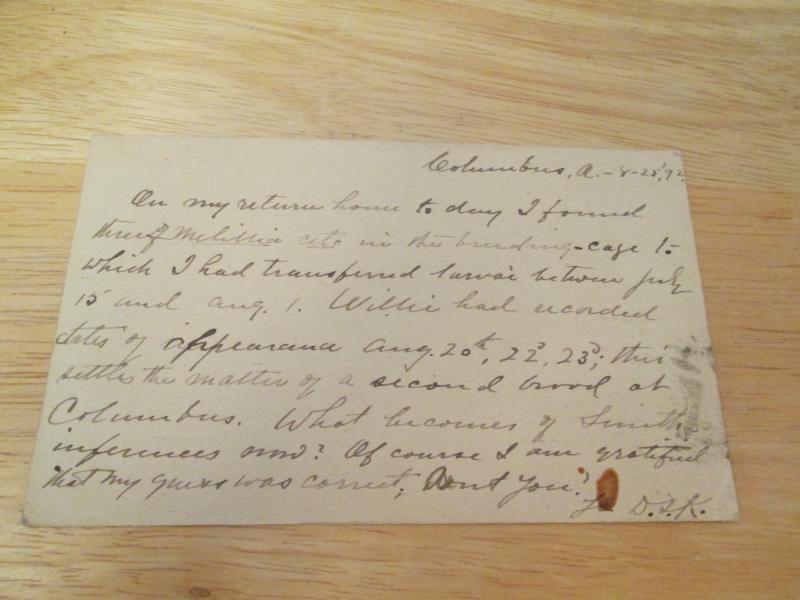 Columbus, O. - 8-25, 92.
On my return home to day I found
three Melittia ceto in the breeding-cage to
which I had transferred larvae between July
15 and Aug. 1. Willie had recorded
dates of appearance Aug. 20th, 22d, 23d; this
settles the matter of a second brood at
Columbus. What becomes of Smith
inferences now? Of course I am gratified
that my guess was correct; Dont you?
D.S.K.